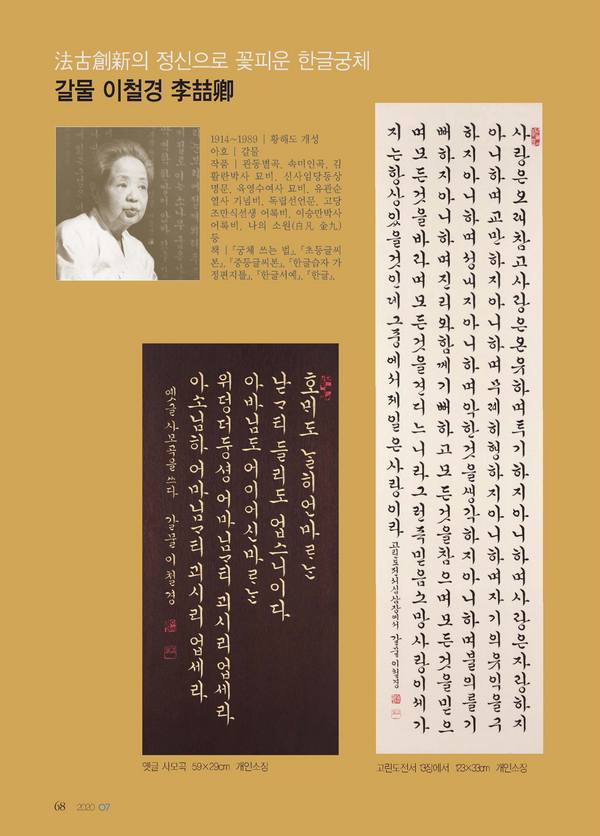 法古創新의 정신으로 꽃피운 한글궁체
갈물 이철경 李喆卿
1914~1989 | 황해도 개성
아호 | 갈물
작품 | 관동별곡, 속미인곡, 김
활란박사 묘비, 신사임당동상
명문, 육영수여사 묘비, 유관순
열사 기념비, 독립선언문, 고당
조만식선생 어록비, 이승만박사
어록비, 나의 소원(白凡 金九)
등
책 | 『궁체 쓰는 법』, 『초등글씨
본』, 『중등글씨본』, 『한글습자 가
정편지틀』, 『한글서예』, 『한글』,
사랑은오래참고사랑은온유하며투기하지아니하며사랑은자랑하지
아니하며교만하지아니하며무례히행하지아니하며자기의유익을구
하지아니하며성내지아니하며악한것을생각하지아니하며불의를기
뻐하지아니하며진리와함께기뻐하고모든것을참으며모든것을믿으
며모든것을바라며모든것을견디느니라그런즉믿음소망사랑이세가
지는항상있을것인데그중에서제일은사랑이라 고린도전서십삼장에서 갈물이철경
호미도 날히언마르는
낟ᄀ티 들리도 업스니이다
아바님도 어이어신마르는
위덩더둥셩 어마님ᄀ티 괴시리 업세라
아소님하 어마님ᄀ티 괴시리 업세라
옛글 사모곡을 쓰다 갈물 이철경
옛글 사모곡 59×29cm 개인소장
고린도전서 13장에서 123×33cm 개인소장
68 2020 07